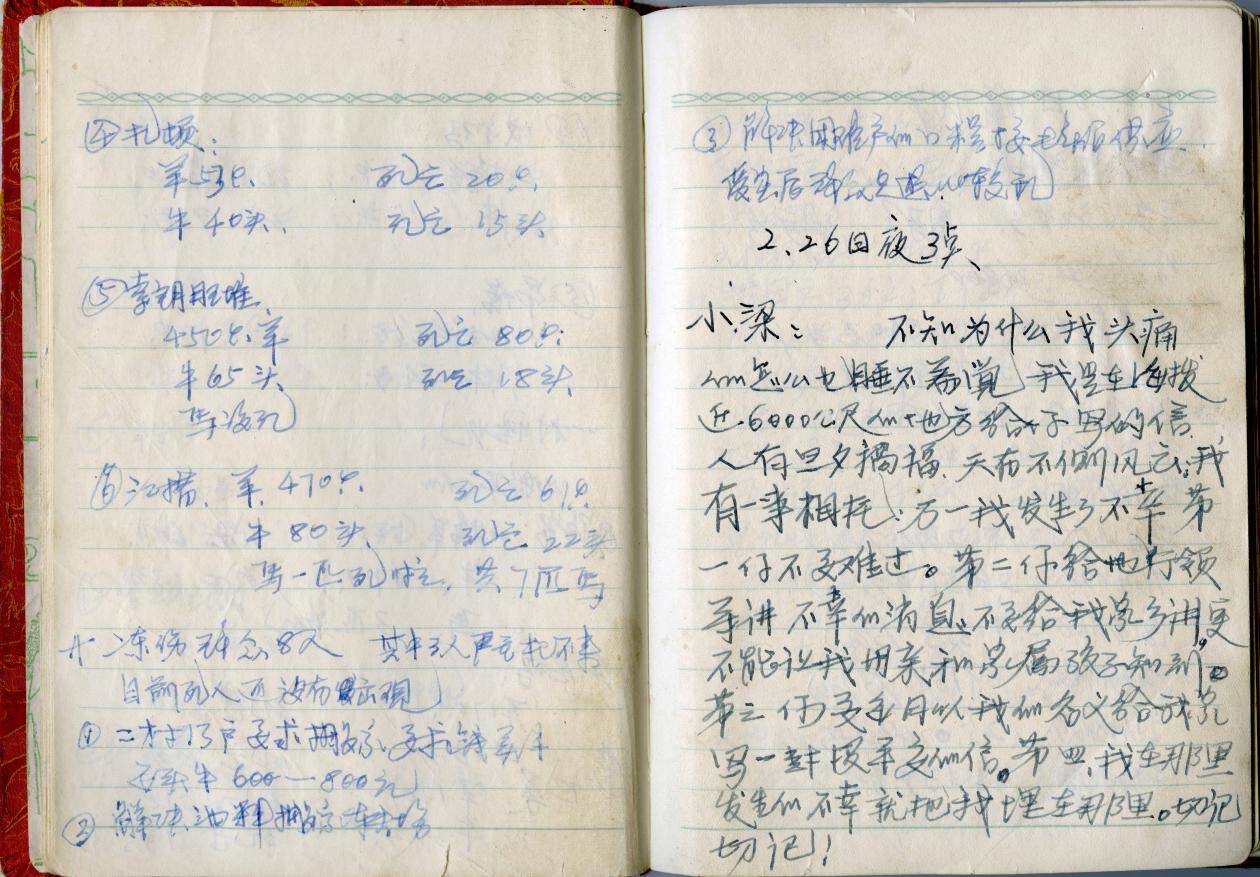 ④扎顿:
羊53只. 死亡 20只.
牛 40头. 死亡 15头
⑤索朗旺堆
450只羊 死亡 80只.
牛65头 死亡 18头
马没死
⑥江措. 羊 470只. 死亡 61只.
牛 80头 死亡 22头
马一匹死亡. 共7匹马
冻伤群众8人 其中3人严重
目前死人还没有出现
① 二村13户要求搬家
600—800元
② 解决
③ 解决困难户的口粮
2.26日夜3点
小梁: 不知为什么我头痛
的怎么也睡不着觉 我是在海拔
近6000公尺的地方给于写的信
人有旦夕祸福. 天有不侧风云, 我
有一事相托: 万一我发生了不幸 第
一仔不要难过。第二仔给地行领
导讲 不幸的消息 不要给我家乡讲. 更
不能让我母亲和家属孩子知到。
第三 仔要每月以我的名义给我家
写一封报平安的信。第四, 我在那里
发生的不幸就把我埋在那里。切记
切记!